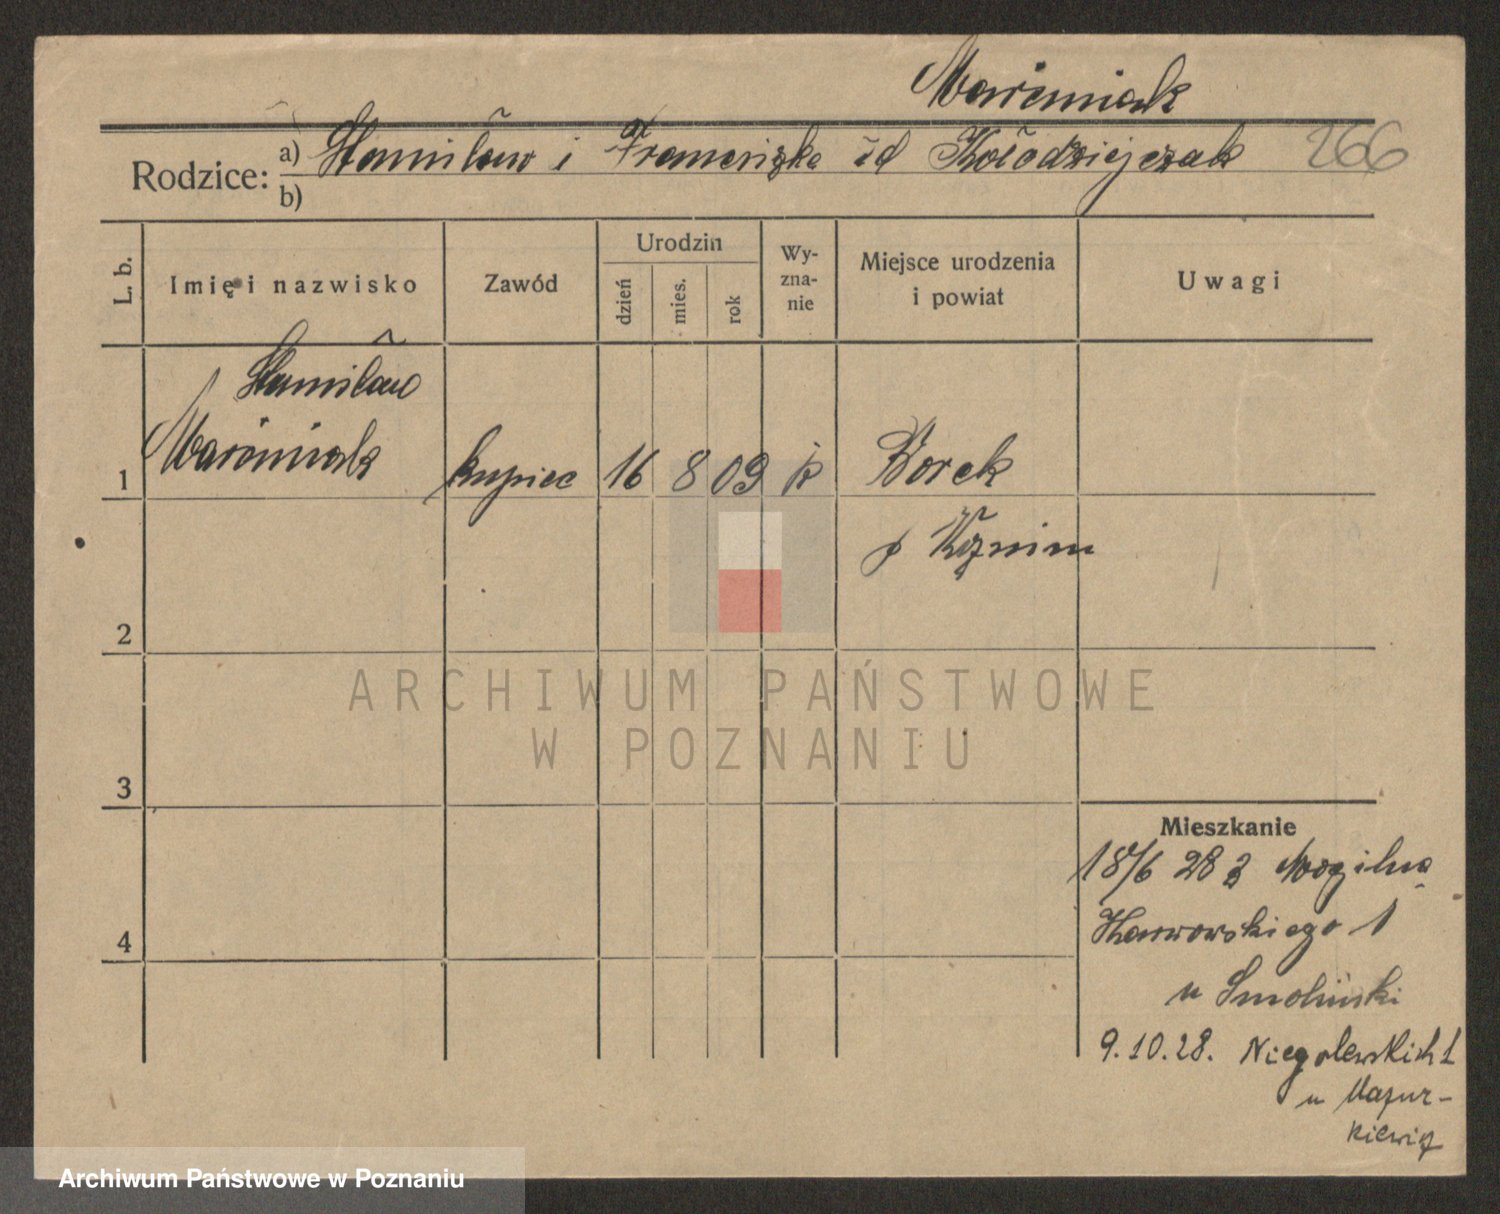 Marciniak
Rodzice: a) Stanisław i Franciszka zd Kołodziejczak 266
b)
L. b. Imię i nazwisko Zawód Urodzin dzień mies. rok Wy-zna-nie Miejsce urodzenia i powiat Uwagi
Stanisław
1 Marciniak kupiec 16 8 09 k Borek
p Koźmin
2
3
4
Mieszkanie
18/6 28 z Mogilna
Karwowskiego 1
u Smoliński
9.10.28. Niegolewskich 1
u Mazur-
kiewicz
ARCHIWUM PAŃSTWOWE
W POZNANIU
Archiwum Państwowe w Poznaniu